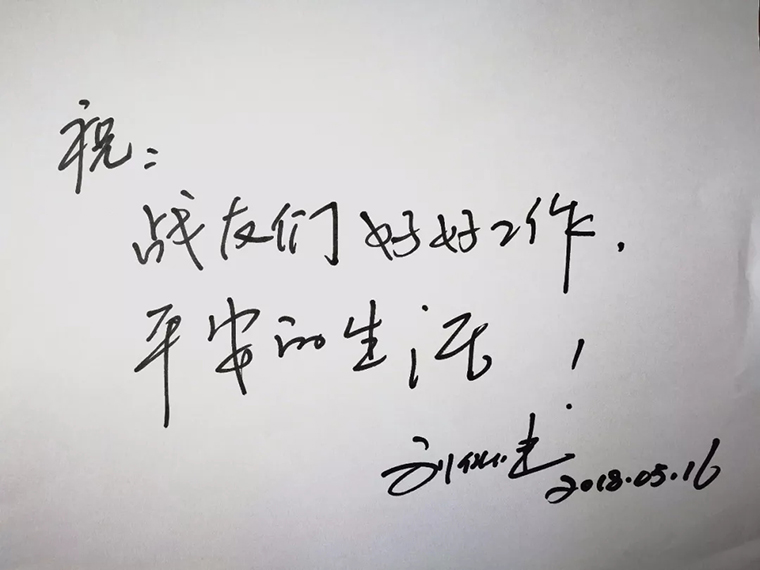 祝：
战友们好好工作，
平安的生活！
2018.05.16